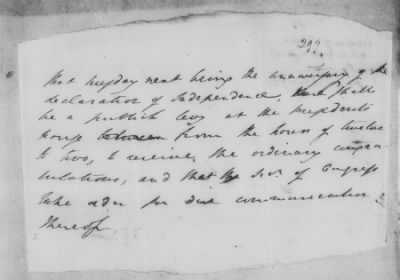 292
that tuesday next being the anniversary of the
declaration of Independence, there shall
be a publick levy at the presidents
house between from the hours of twelve
to two, to receive, the ordinary congra
tulations, and that the Secy. of Congress
take order for due communication
thereof